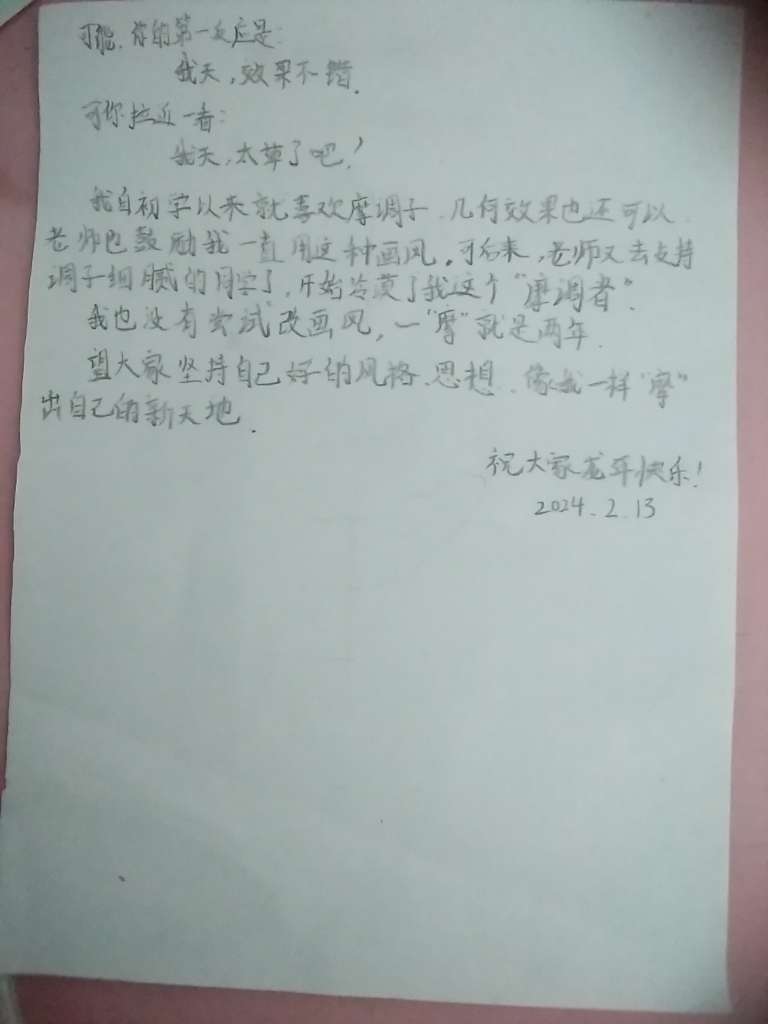 可能,你的第一反应是:
我天,效果不错.
可你拉近一看:
我天,太草了吧!
我自初学以来就喜欢摩调子.几何效果也还可以.
老师也鼓励我一直用这种画风.可后来,老师又去支持
调子细腻的同学了.开始冷漠了我这个“摩调者”.
我也没有尝试改画风,一“摩”就是两年.
望大家坚持自己好的风格.思想.像我一样“摩”
出自己的新天地.
祝大家龙年快乐!
2024.2.13